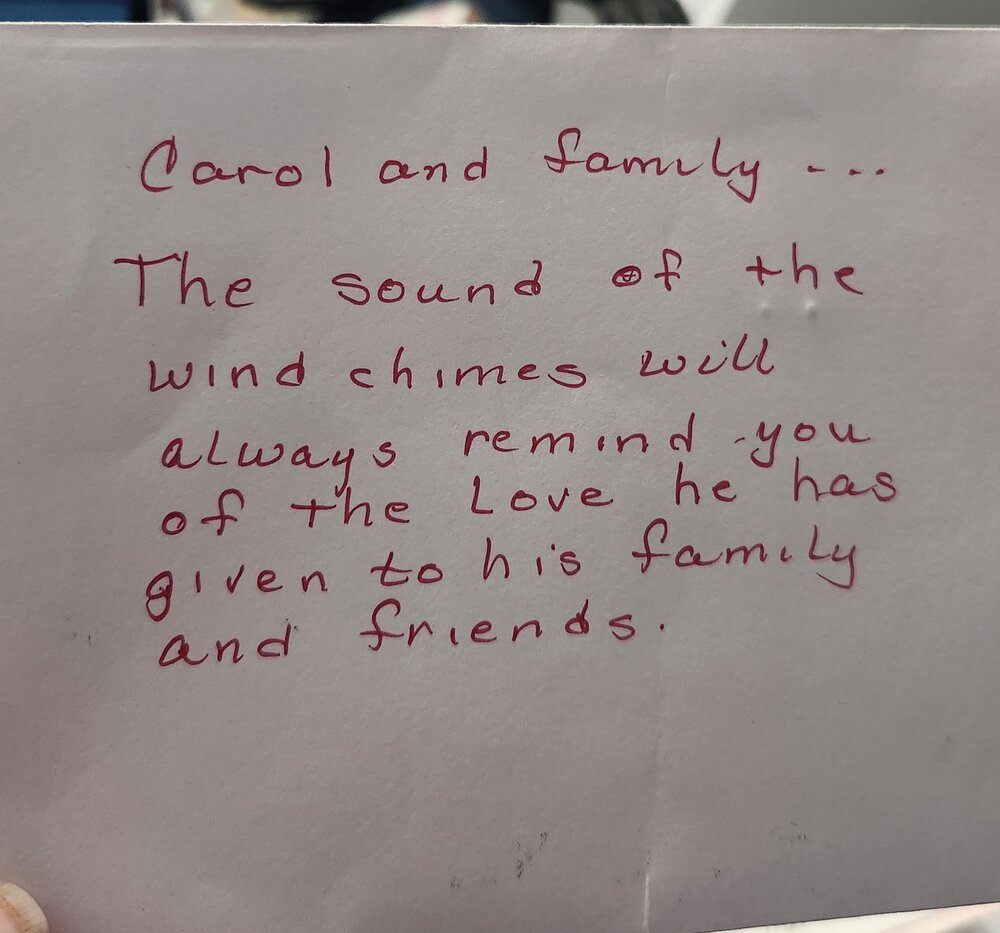 Carol and family ...
The sound of the
wind chimes will
always remind you
of the Love he has
given to his family
and friends.